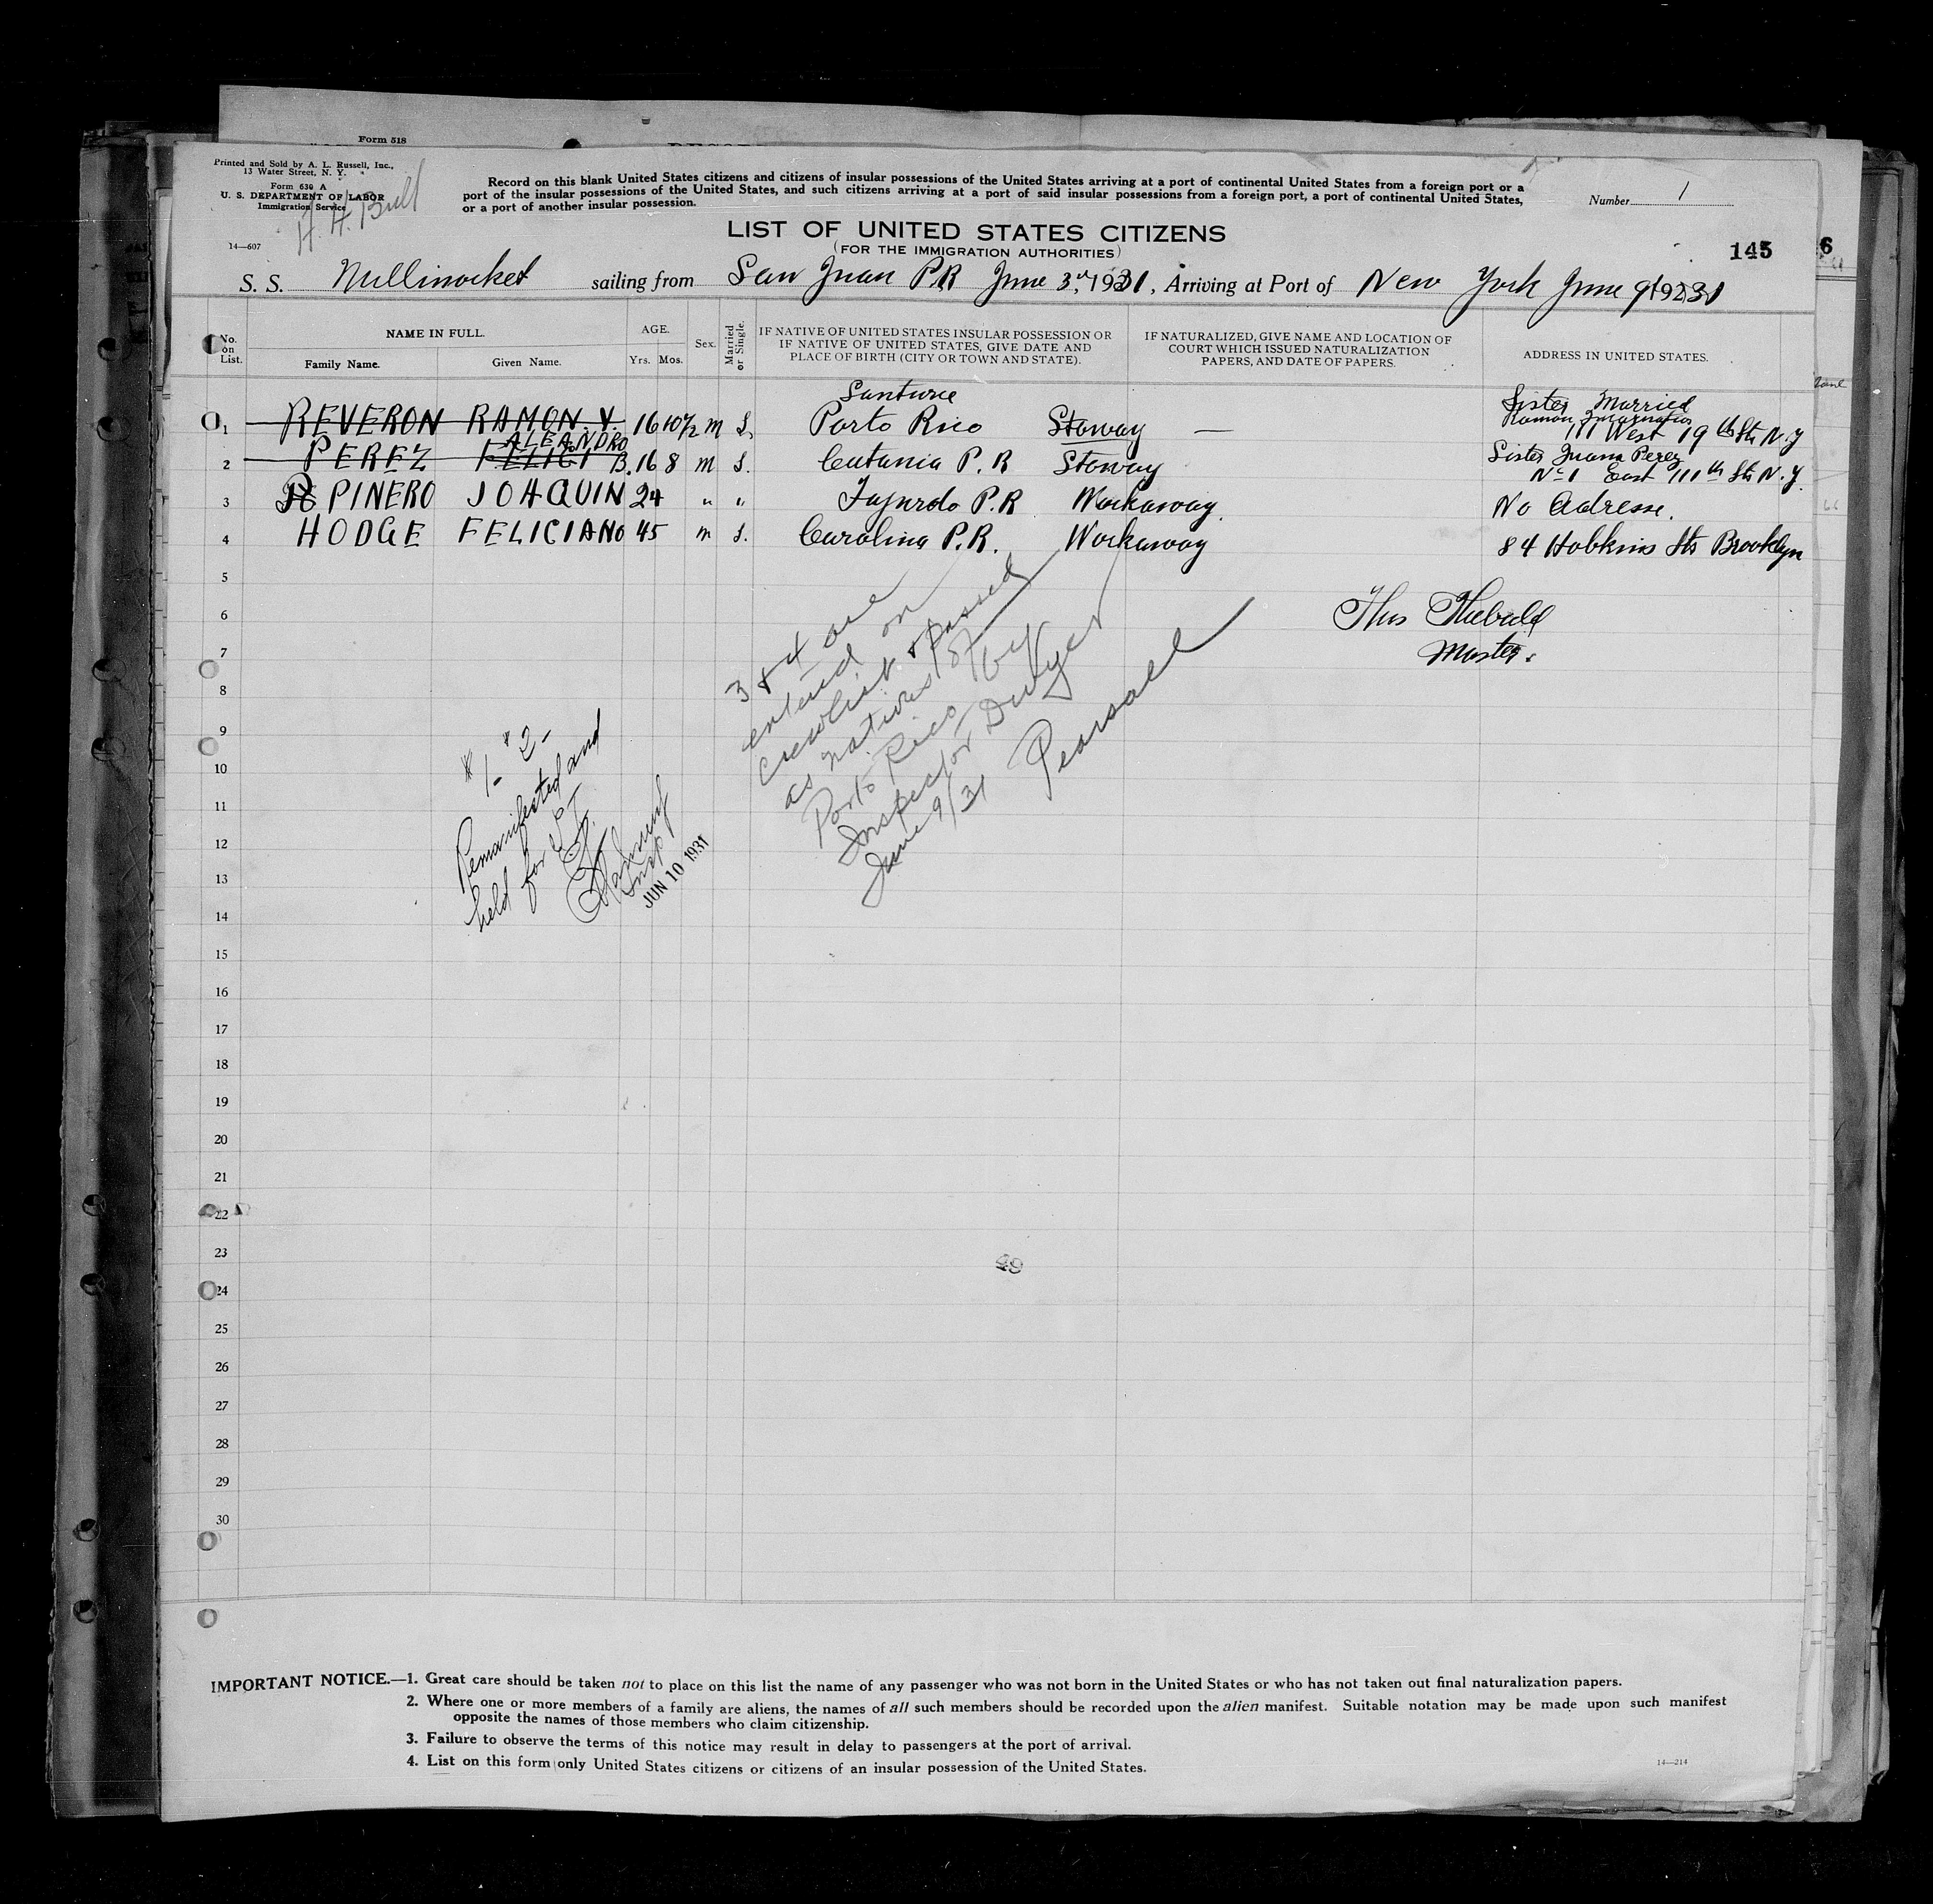 Form 518
Printed and Sold by A. L. Russell, Inc.,
13 Water Street, N. Y.
Form 630 A
U. S. DEPARTMENT OF LABOR
Immigration Service
14—607
H. H. Bull
Record on this blank United States citizens and citizens of insular possessions of the United States arriving at a port of continental United States from a foreign port or a
port of the insular possessions of the United States, and such citizens arriving at a port of said insular possessions from a foreign port, a port of continental United States,
or a port of another insular possession.
Number 1
LIST OF UNITED STATES CITIZENS
(FOR THE IMMIGRATION AUTHORITIES)
145 6
S. S. Millinocket sailing from San Juan P.R June 3rd, 1931, Arriving at Port of New York June 9 1931
No. on List.
NAME IN FULL.
Family Name. Given Name.
AGE.
Yrs. Mos.
Sex.
Married or Single.
IF NATIVE OF UNITED STATES INSULAR POSSESSION OR
IF NATIVE OF UNITED STATES, GIVE DATE AND
PLACE OF BIRTH (CITY OR TOWN AND STATE).
IF NATURALIZED, GIVE NAME AND LOCATION OF
COURT WHICH ISSUED NATURALIZATION
PAPERS, AND DATE OF PAPERS.
ADDRESS IN UNITED STATES.
Santurce Sister Married
1 REVERON RAMON. Y. 16 10½ m S. Porto Rico Stoway — Ramon
111 West 19th Str N.Y
ALEANDRO Sister Juana Perez
2 PEREZ FELICI B. 16 8 m S. Catania P.R Stoway No 1 East 111th Str N.Y.
3 PINERO JOHQUIN 24 " " Fajardo P.R Workaway. No Adresse.
4 HODGE FELICIANO 45 m S. Carolina P.R. Workaway 84 Hobkins Str Brooklyn
5
6
7
8
9
10
11
12
13
14
15
16
17
18
19
20
21
22
23
24
25
26
27
28
29
30
Thos Thebald
Master.
3 & 4 are
entered on
crewlist & passed
as natives of
Porto Rico by
Inspector Dwyer
June 9/31 Pearsall
#1- #2-
Remanifested and
held for
Insp
JUN 10 1931
49
IMPORTANT NOTICE.—1. Great care should be taken not to place on this list the name of any passenger who was not born in the United States or who has not taken out final naturalization papers.
2. Where one or more members of a family are aliens, the names of all such members should be recorded upon the alien manifest. Suitable notation may be made upon such manifest
opposite the names of those members who claim citizenship.
3. Failure to observe the terms of this notice may result in delay to passengers at the port of arrival.
4. List on this form only United States citizens or citizens of an insular possession of the United States.
14—214